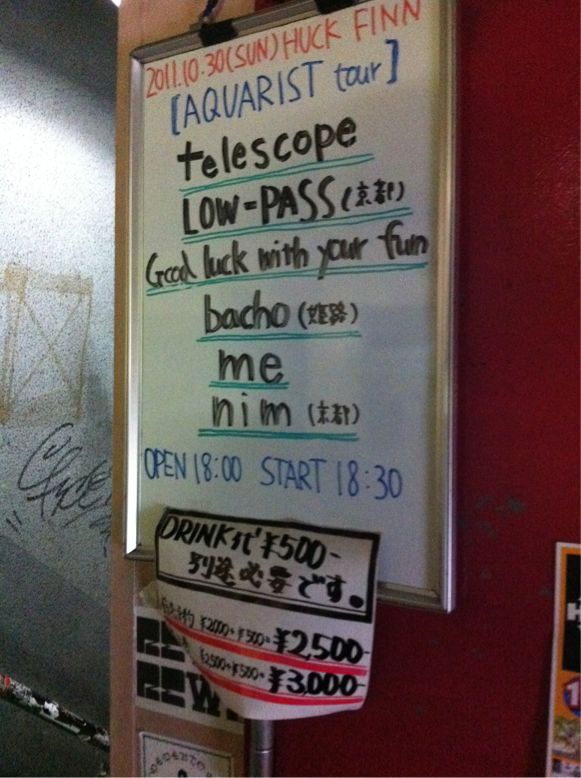 2011.10.30(SUN)HUCK FINN
[AQUARIST tour]
telescope
LOW-PASS(京都)
Good luck with your fun
bacho(姫路)
me
nim(京都)
OPEN 18:00 START 18:30
DRINK代¥500-
別途必要です。
¥2000+¥500=¥2,500-
¥2,500+¥500=¥3,000-